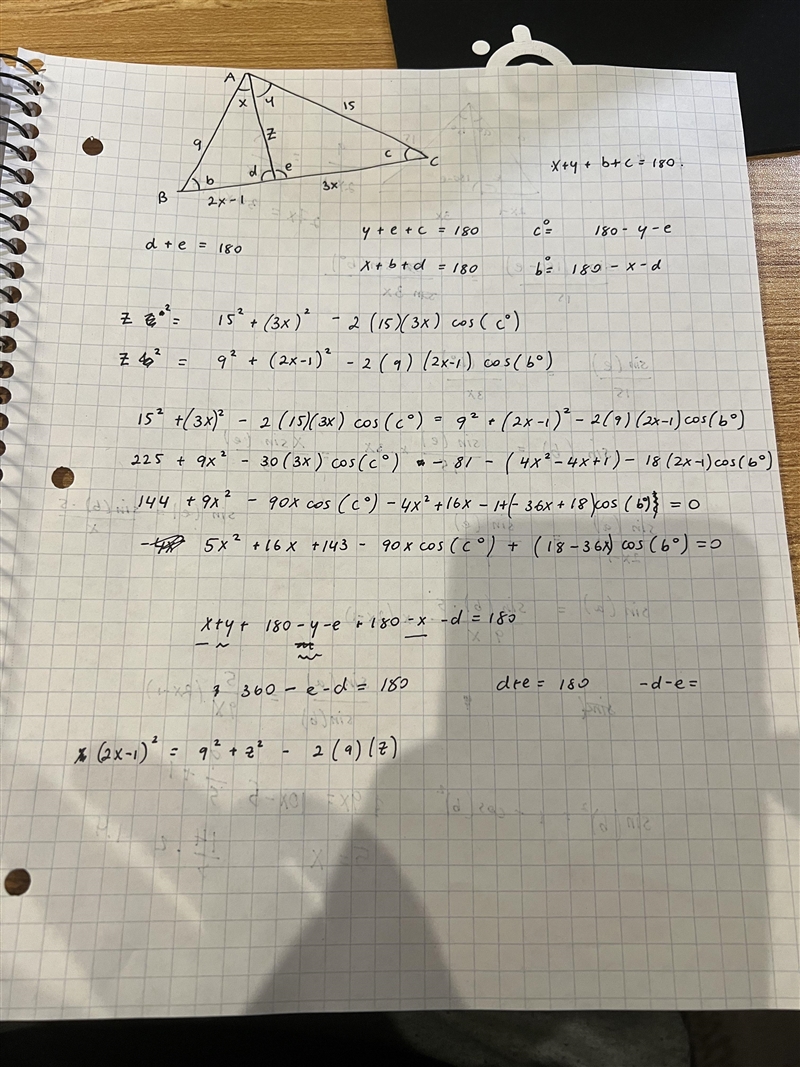 A
x y
15
9
z
d e
c
C
B
b
2x-1
3x
x+y + b+c = 180.
d + e = 180
y + e + c = 180
c°= 180 - y - e
x + b + d = 180
b°= 180 - x - d
z² = 15² + (3x)² - 2(15)(3x) cos(c°)
z² = 9² + (2x-1)² - 2(9)(2x-1) cos(b°)
15² + (3x)² - 2(15)(3x) cos(c°) = 9² + (2x-1)² - 2(9)(2x-1)cos(b°)
225 + 9x² - 30(3x) cos(c°) - 81 - (4x²-4x+1) - 18(2x-1)cos(b°)
144 + 9x² - 90x cos(c°) - 4x² + 16x - 1 + (-36x + 18)cos(b°) = 0
5x² + 16x + 143 - 90x cos(c°) + (18-36x) cos(b°) = 0
x+y + 180 - y - e + 180 - x - d = 180
360 - e - d = 180
d+e = 180
-d-e=
(2x-1)² = 9² + z² - 2(9)(z)